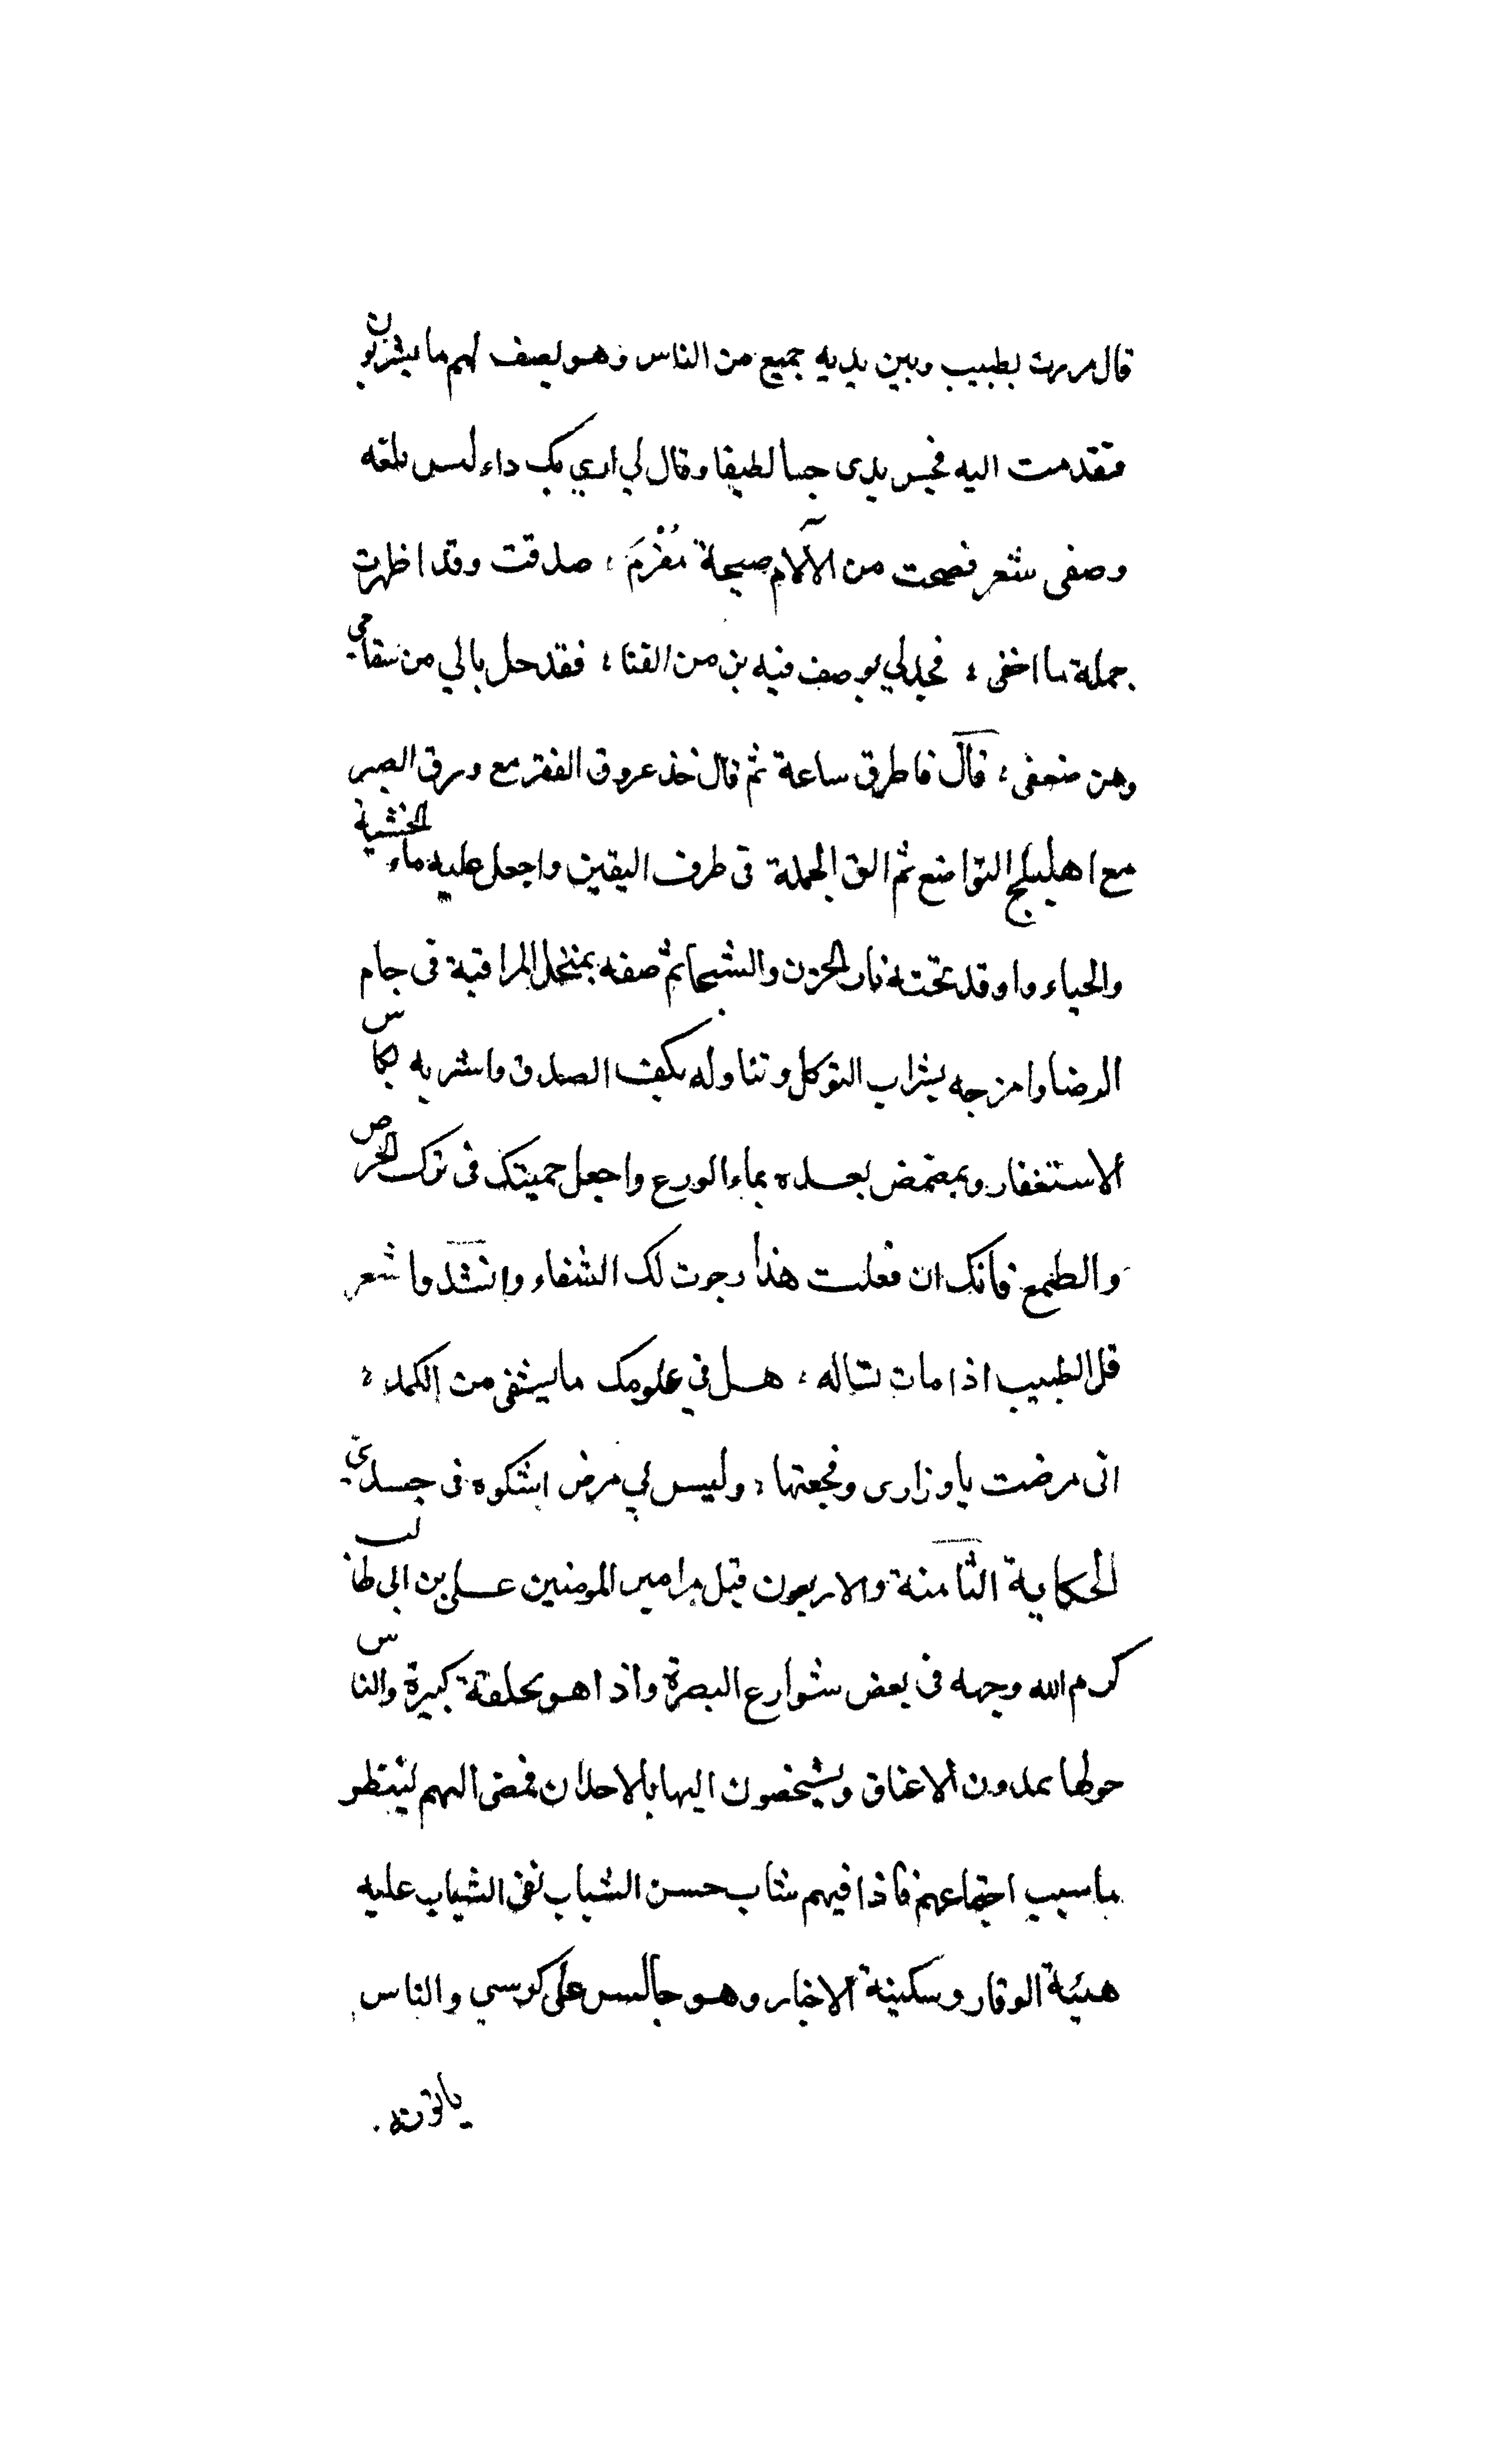 قال مررت بطبيب وبين يديه جميع من الناس وهو يصف لهم ما يشربون
فتقدمت اليه فجس يدى جسا لطيفا وقال لي اري بك داء ليس يلقه
وصفى شعر فصحت من الآلام صيحة مُغْرَمَ ؛ صدقت وقد اظهرت
جملة ما اخفى ؛ فجد لي بوصف فيه بن من الفنا ؛ فقد حل بالي من سقامي
وهن ضعفى ؛ قال فاطرق ساعة ثم قال خذ عروق الفقر مع ورق الصبر
مع اهليلج التواضع ثم الق الجملة فى طرف اليقين واجعل عليه ماء الخشية
والحياء واوقد تحته نار الحزن والشجا ثم صفه بمنخل المراقبة فى جام
الرضا وامزجه بشراب التوكل وتناوله بكف الصدق واشربه بكاس
الاستغفار وتمضمض بعده بماء الورع واجعل حميتك فى ترك الحرص
والطمع فانك ان فعلت هذا رجوت لك الشفاء وانشدوا شعر
قل للطبيب اذا مات تساله ؛ هل في علومك ما يشفى من الكمد ؛
انى مرضت باوزارى وفجعتها ؛ وليس لي مرض اشكوه فى جسدي
الحكاية الثامنة والاربعون قيل مر امير المومنين على بن ابى طالب
كرم الله وجهه فى بعض شوارع البصرة واذا هو بحلقة كبيرة والناس
حولها يمدون الاعناق ويشخصون اليها بالاحداق فمضى اليهم لينظر
ما سبب اجتماعهم فاذا فيهم شاب حسن الشباب نقى الثياب عليه
هيئة الوقار وسكينة الاخيار وهو جالس على كرسي والناس
ياتونه